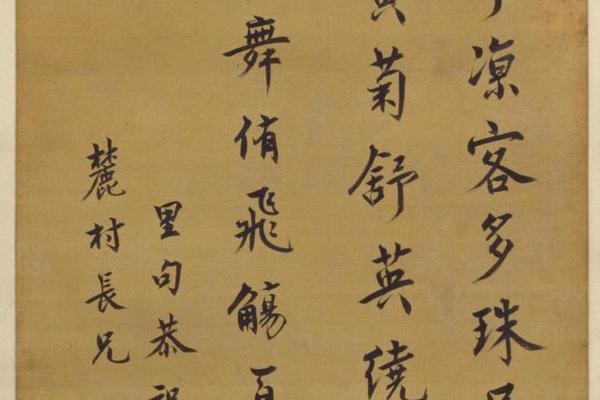 凉客多珠
菊舒英繞
舞侑飛觴
里句恭祝
麓村長兄